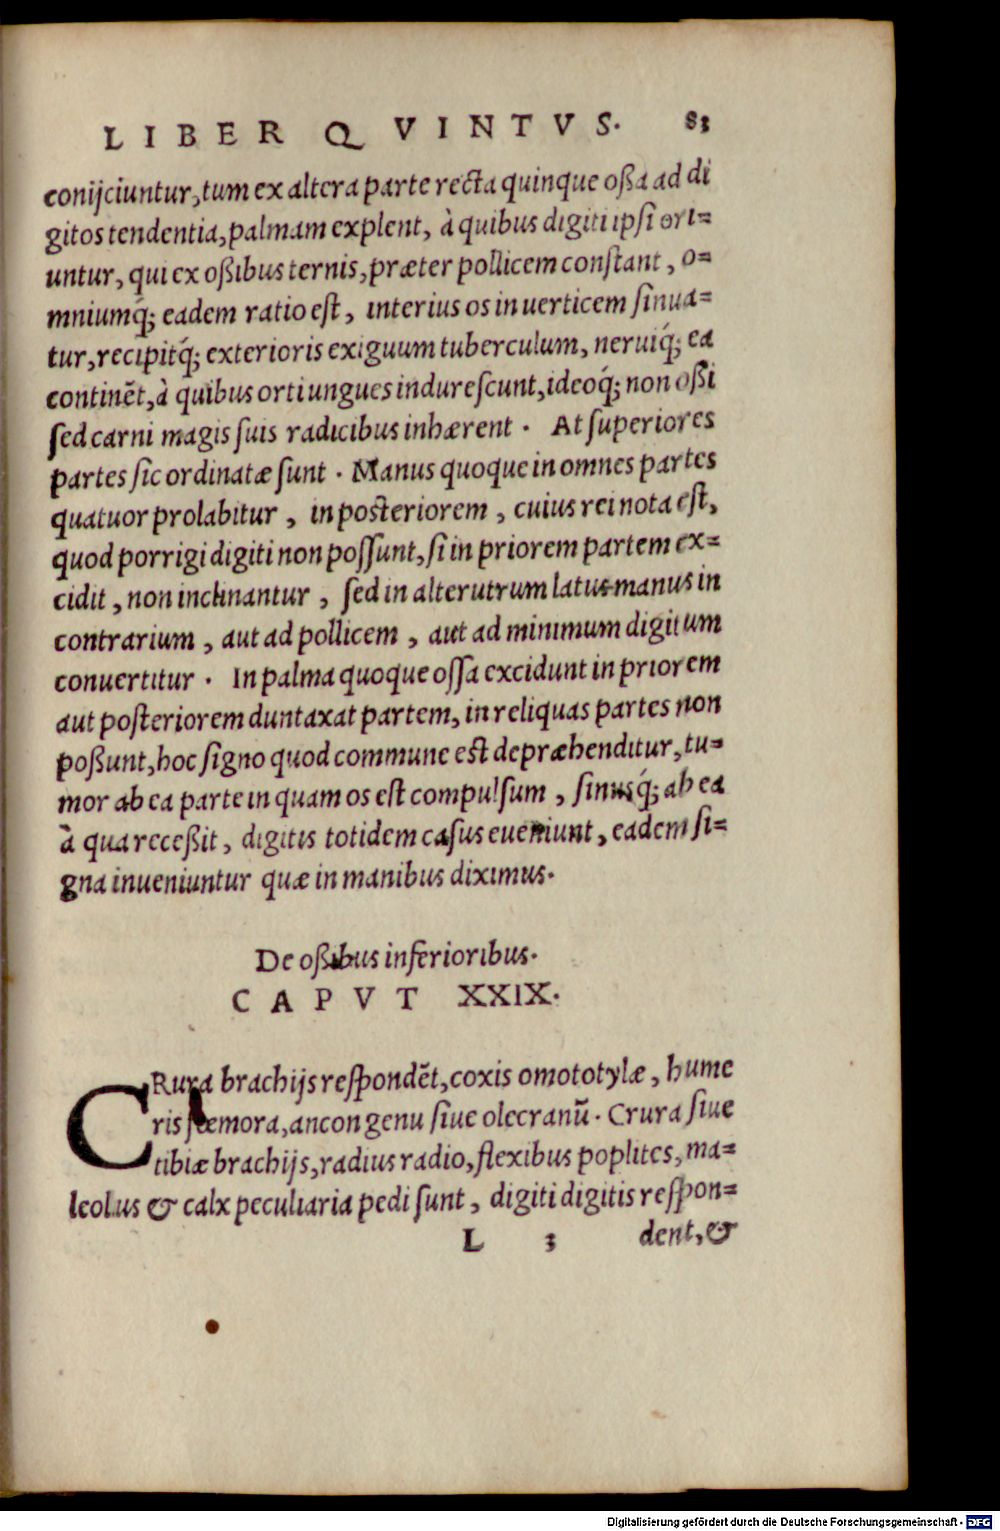 LIBER QVINTVS. 83
conijciuntur, tum ex altera parte recta quinque oßa ad di
gitos tendentia, palmam explent, à quibus digiti ipsi ori=
untur, qui ex oßibus ternis, præter pollicem constant, o=
mniumq́; eadem ratio est, interius os in uerticem sinua=
tur, recipitq́; exterioris exiguum tuberculum, neruiq́; ea
continẽt, à quibus orti ungues indurescunt, ideoq́; non oßi
sed carni magis suis radicibus inhærent. At superiores
partes sic ordinatæ sunt. Manus quoque in omnes partes
quatuor prolabitur, in posteriorem, cuius rei nota est,
quod porrigi digiti non possunt, si in priorem partem ex=
cidit, non inclinantur, sed in alterutrum latus manus in
contrarium, aut ad pollicem, aut ad minimum digitum
conuertitur. In palma quoque ossa excidunt in priorem
aut posteriorem duntaxat partem, in reliquas partes non
poßunt, hoc signo quod commune est depræhenditur, tu=
mor ab ea parte in quam os est compulsum, sinusq́; ab ea
à qua receßit, digitis totidem casus eueniunt, eadem si=
gna inueniuntur quæ in manibus diximus.
De oßibus inferioribus.
CAPVT XXIX.
CRura brachijs respondẽt, coxis omototylæ, hume
ris fœmora, ancon genu siue olecranũ. Crura siue
tibiæ brachijs, radius radio, flexibus poplites, ma=
leolus & calx peculiaria pedi sunt, digiti digitis respon=
L 3 dent, &
Digitalisierung gefördert durch die Deutsche Forschungsgemeinschaft - DFG